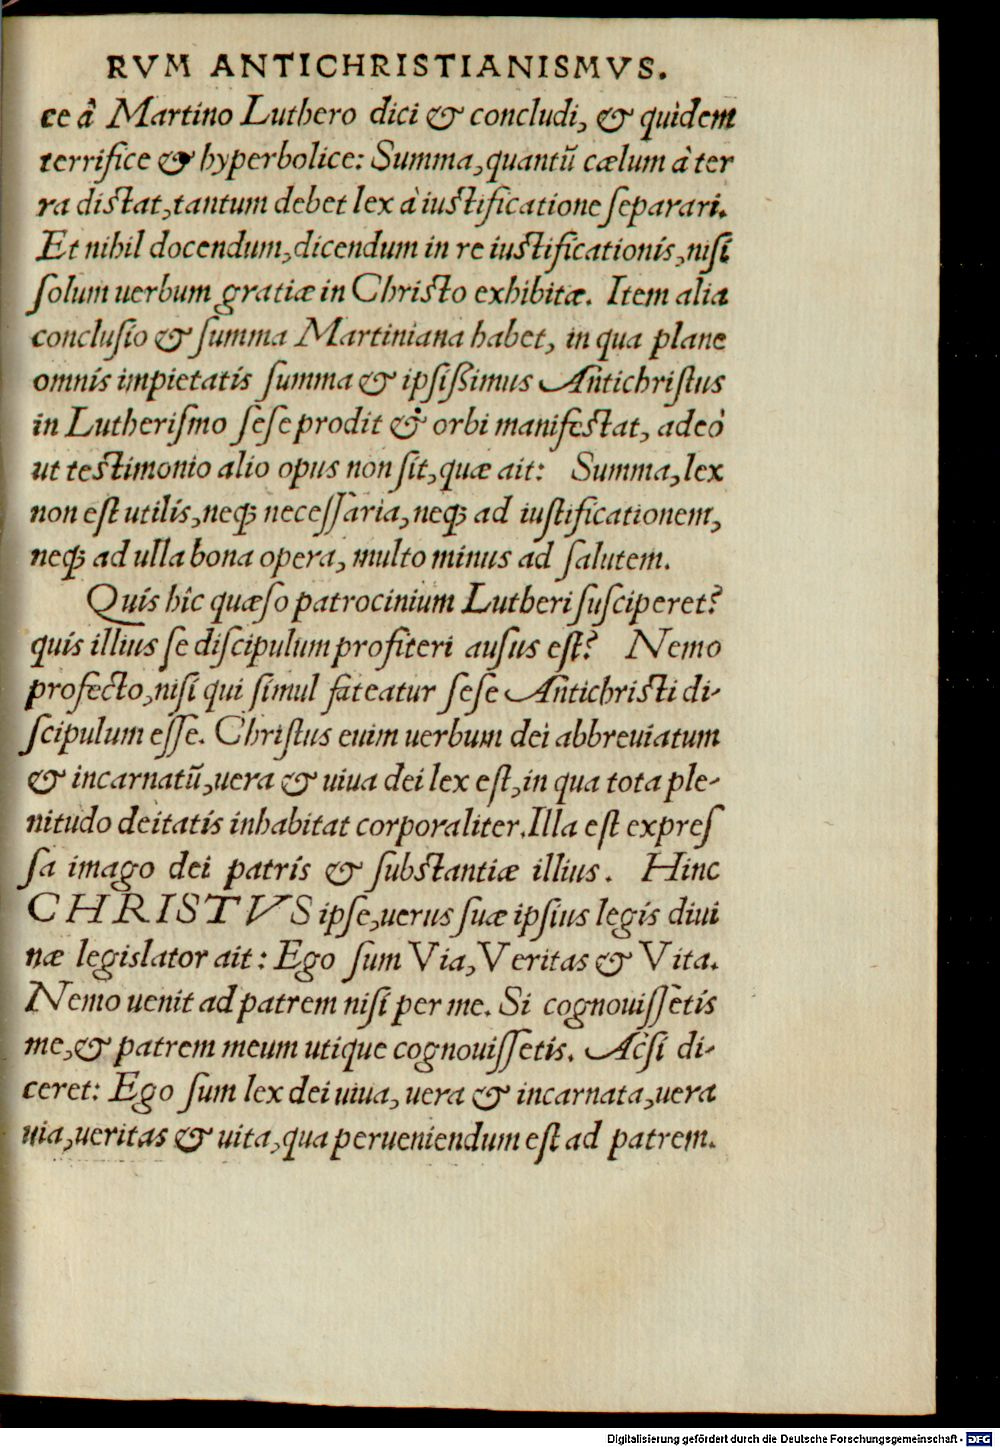 RVM ANTICHRISTIANISMVS.
ce à Martino Luthero dici & concludi, & quidem
terrifice & hyperbolice: Summa, quantũ cælum à ter
ra distat, tantum debet lex à iustificatione ſeparari.
Et nihil docendum, dicendum in re iustificationis, niſi
ſolum uerbum gratiæ in Christo exhibitæ. Item alia
concluſio & ſumma Martiniana habet, in qua plane
omnis impietatis ſumma & ipſiſſimus Antichriſtus
in Lutheriſmo ſeſe prodit & orbi manifestat, adeò
ut testimonio alio opus non ſit, quæ ait: Summa, lex
non eſt utilis, neqꝫ neceſſaria, neqꝫ ad iuſtificationem,
neqꝫ ad ulla bona opera, multo minus ad ſalutem.
Quis hîc quæſo patrocinium Lutheri ſuſciperet?
quis illius ſe diſcipulum profiteri auſus eſt? Nemo
profecto, niſi qui ſimul fateatur ſeſe Antichristi di-
ſcipulum eſſe. Chriſtus euim uerbum dei abbreuiatum
& incarnatũ, uera & uiua dei lex eſt, in qua tota ple-
nitudo deitatis inhabitat corporaliter. Illa eſt expreſ
ſa imago dei patris & ſubstantiæ illius. Hinc
CHRISTVS ipſe, uerus ſuæ ipſius legis diui
næ legislator ait: Ego ſum Via, Veritas & Vita.
Nemo uenit ad patrem niſi per me. Si cognouiſſetis
me, & patrem meum utique cognouiſſetis. Acſi di-
ceret: Ego ſum lex dei uiua, uera & incarnata, uera
uia, ueritas & uita, qua perueniendum eſt ad patrem.
Digitalisierung gefördert durch die Deutsche Forschungsgemeinschaft - DFG